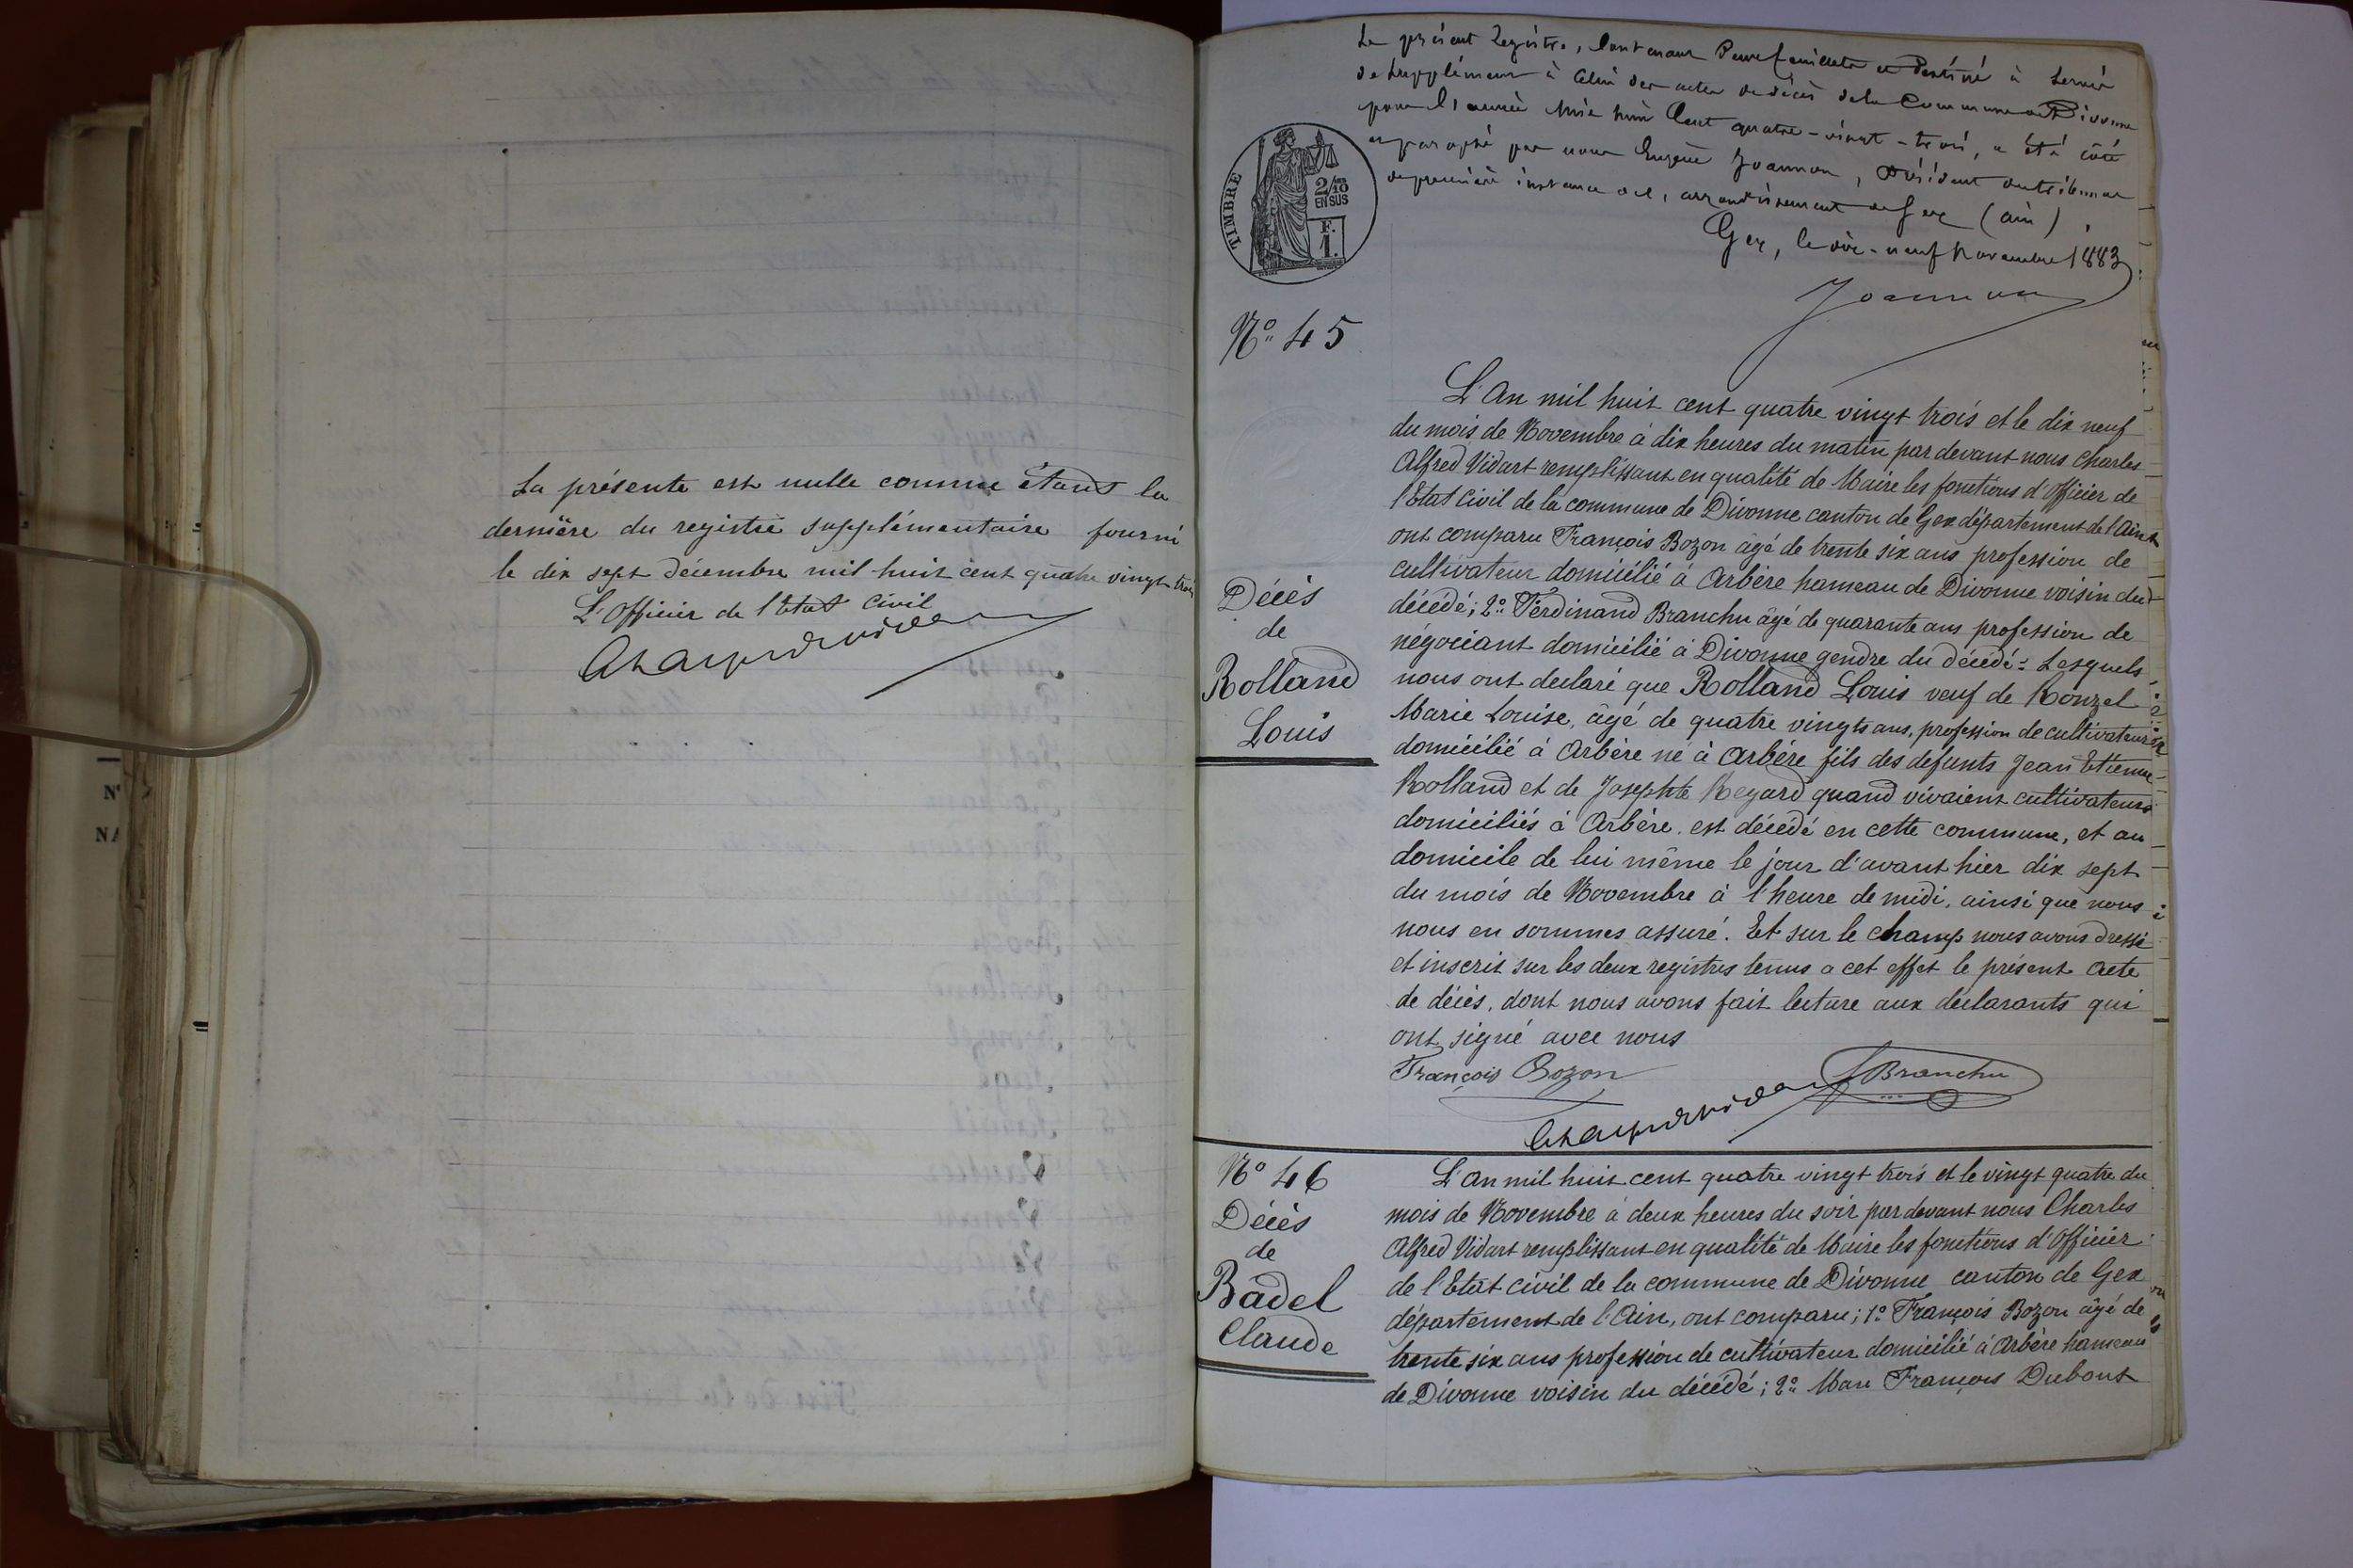 La présente est nulle comme étant la
dernière du registre supplémentaire fourni
le dix sept décembre mil huit cent quatre vingt trois
L'Officier de l'Etat Civil
Le présent Registre, contenant deux feuillets et destiné à servir
de supplément à celui des actes de décès de la Commune de Divonne
pour l'année mil huit cent quatre-vingt-trois, a été côté
et paraphé par nous Eugène Joannon, Président du tribunal
de première instance de l'arrondissement de Gex (Ain)
Gex, le dix-neuf novembre 1883
Joannon
TIMBRE
2/10
EN SUS
F.
1.
N° 45
Décès
de
Rolland
Louis
L'An mil huit cent quatre vingt trois et le dix neuf
du mois de Novembre à dix heures du matin par devant nous Charles
Alfred Vidart remplissant en qualité de Maire les fonctions d'Officier de
l'Etat Civil de la commune de Divonne canton de Gex département de l'Ain
ont comparu François Bozon âgé de trente six ans profession de
cultivateur domicilié à Arbère hameau de Divonne voisin du
décédé; 2° Ferdinand Branchu âgé de quarante ans profession de
négociant domicilié à Divonne gendre du décédé: Lesquels
nous ont declaré que Rolland Louis veuf de Ronzel
Marie Louise, âgé de quatre vingts ans, profession de cultivateur
domicilié à Arbère né à Arbère fils des defunts Jean Etienne
Rolland et de Josephte Regard quand vivaient cultivateurs
domiciliés à Arbère. est décédé en cette commune, et au
domicile de lui même le jour d'avant hier dix sept
du mois de Novembre à l'heure de midi, ainsi que nous
nous en sommes assuré. Et sur le champ nous avons dressé
et inscrit sur les deux registres tenus a cet effet le présent Acte
de décès, dont nous avons fait lecture aux déclarants qui
ont signé avec nous
François Bozon
Branchu
N° 46
Décès
de
Badel
Claude
L'An mil huit cent quatre vingt trois et le vingt quatre du
mois de Novembre à deux heures du soir par devant nous Charles
Alfred Vidart remplissant en qualité de Maire les fonctions d'Officier
de l'Etat civil de la commune de Divonne canton de Gex
département de l'Ain, ont comparu; 1° François Bozon âgé de
trente six ans profession de cultivateur domicilié à Arbère hameau
de Divonne voisin du décédé; 2° Marc François Dubout